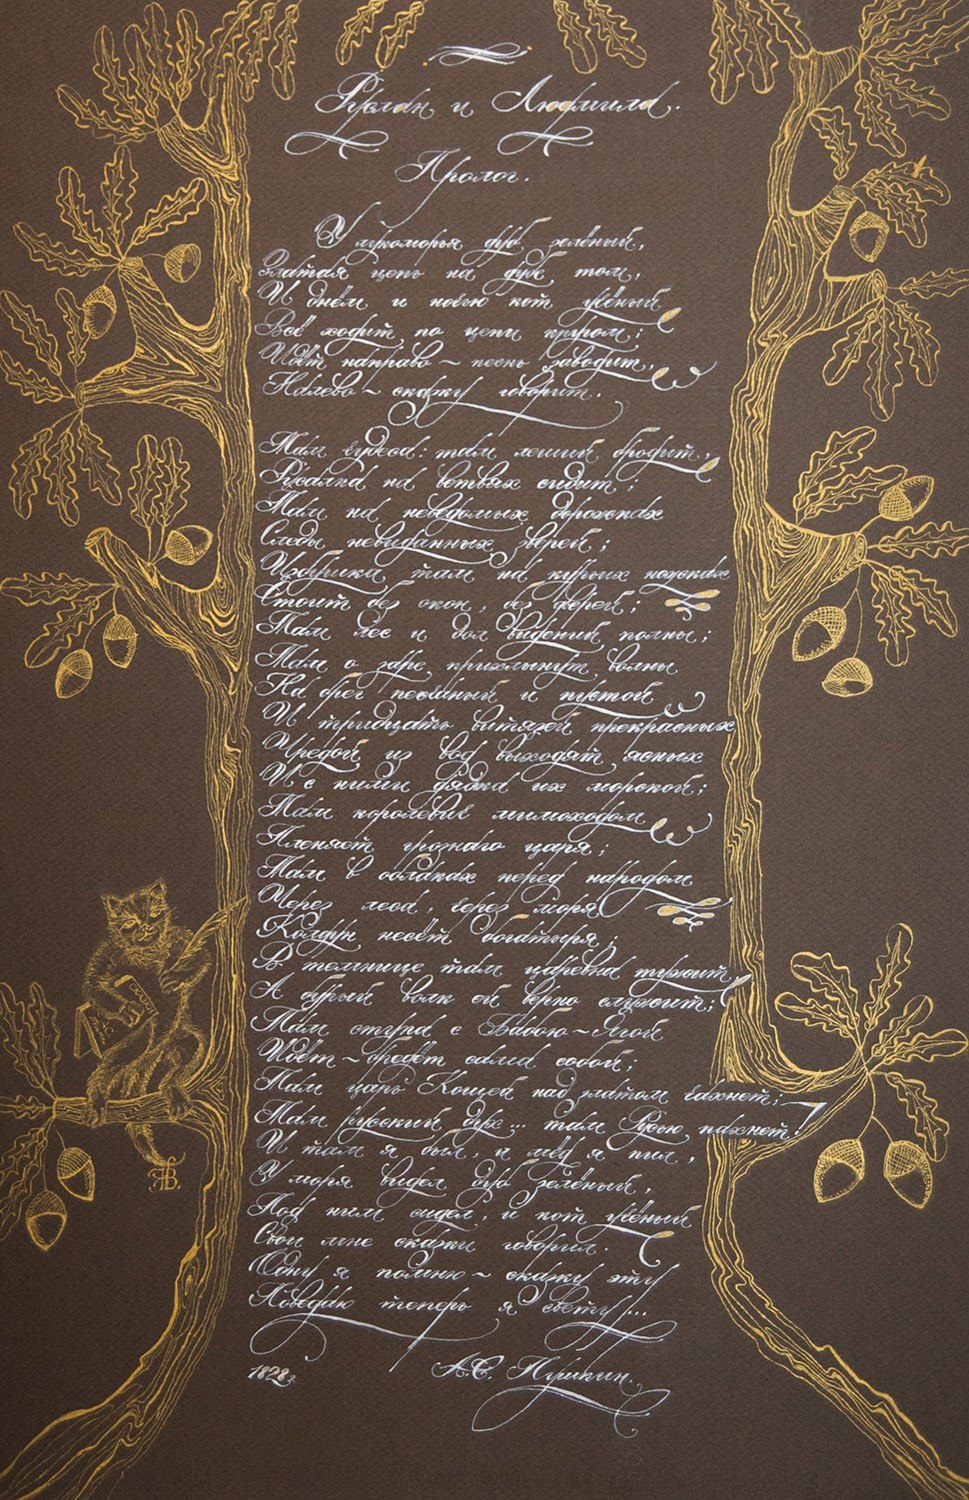 Руслан и Людмила.
Пролог.
У лукоморья дуб зелёный,
Златая цепь на дубе том,
И днём и ночью кот учёный
Всё ходит по цепи кругом;
Идёт направо ~ песнь заводит,
Налево ~ сказку говорит.
Там чудеса: там леший бродит,
Русалка на ветвях сидит;
Там на неведомых дорожках
Следы невиданных зверей;
Избушка там на курьих ножках
Стоит без окон, без дверей;
Там лес и дол видений полны;
Там о заре прихлынут волны
На брег песчаный и пустой
И тридцать витязей прекрасных
Чредой из вод выходят ясных
И с ними дядька их морской;
Там королевич мимоходом
Пленяет грозного царя;
Там в облаках перед народом
Через леса, через моря
Колдун несёт богатыря;
В темнице там царевна тужит
А бурый волк ей верно служит;
Там ступа с Бабою~Ягой
Идёт~бредёт сама собой;
Там царь Кощей над златом чахнет;
Там русский дух... там Русью пахнет!
И там я был, и мёд я пил,
У моря видел дуб зелёный,
Под ним сидел, и кот учёный
Свои мне сказки говорил.
Одну я помню ~ сказку эту
Поведаю теперь я свету...
1828г.
А.С. Пушкин.